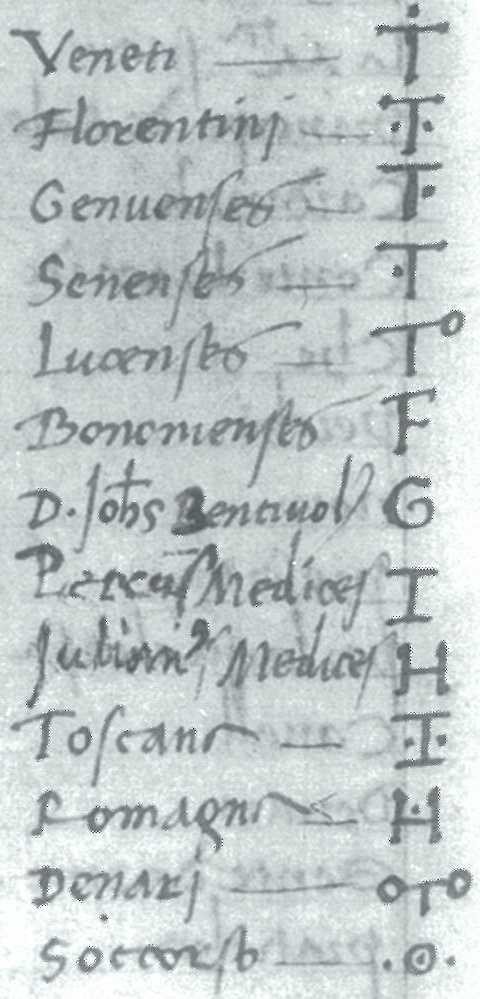 Veneti — Ṫ
Florentinj — ·T·
Genuenses — T·
Senenses — ·T
Lucenses — T°
Bononienses F
D. Johs Bentiuol G
Petrus Medices I
Julianus Medices H
Toscani — ·I·
Romagni — H
Denarj — oTo
Soccorso — ·⊙·